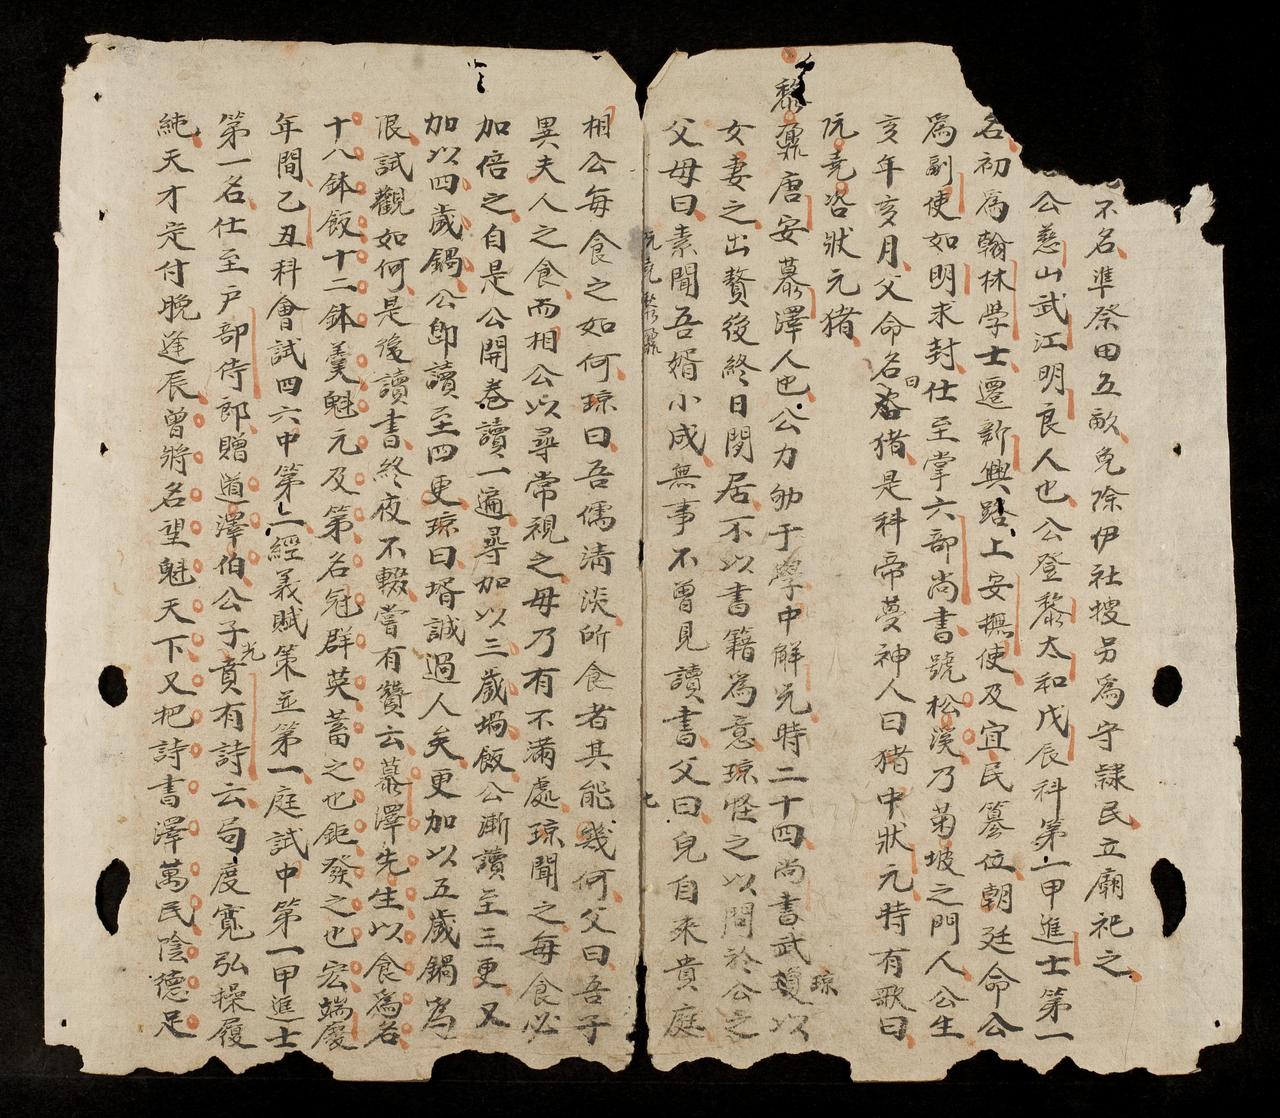 不名準祭田五畝免除伊社搜另為守隷民立廟祀之
公慈山武江明良人也公登黎太和戊辰科第一甲進士第一
名初為翰林學士遷新興路上安撫使及宜民簒位朝廷命公
為副使如明求封仕至掌六部尚書號松溪乃菊坡之門人公生
亥年亥月父命名曰猪是科帝夢神人曰猪中狀元時有歌曰
阮堯咨狀元猪
黎鼐唐安慕澤人也公力劬于學中解元時二十四尚書武瓊以
琼
女妻之出贅後終日閑居不以書籍為意琼怪之以問於公之
父母曰素聞吾婿小成無事不曾見讀書父曰兒自来貴庭
阮堯黎鼐
七
相公每食之如何琼曰吾儒清淡所食者其能幾何父曰吾子
異夫人之食而相公以尋常視之毋乃有不滿處琼聞之每食必
加倍之自是公開卷讀一遍尋加以三歲堝飯公漸讀至三更又
加以四歲鍋公卽讀至四更琼曰壻誠過人矣更加以五歲鍋為
限試觀如何是後讀書終夜不輟嘗有贊云慕澤先生以食為名
十八鉢飯十二鉢羹魁元及第名冠群英蓄之也鉅發之也宏端慶
年間乙丑科會試四六中第一經義賦策並第一庭試中第一甲進士
第一名仕至户部侍郎贈道澤伯公子光賁有詩云局度寬弘操履
純天才定付晚逢辰曾將名望魁天下又把詩書澤萬民陰德足